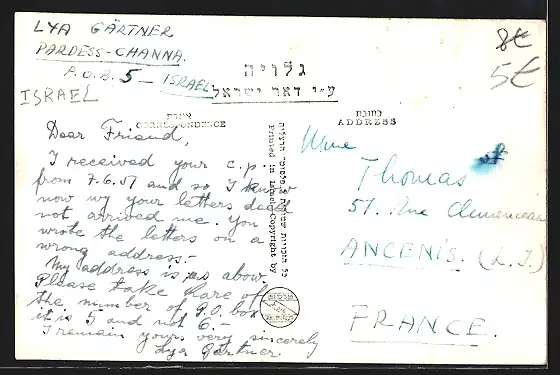 LYA GÄRTNER
PARDESS-CHANNA.
P.O.B. 5 — ISRAEL
ISRAEL
גלויה
ע״י דאר ישראל
8€
5€
אגרת
CORRESPONDENCE
כתובת
ADDRESS
Dear Friend,
I received your c.p.
from 7.6.51 and so I know
now wy your letters
not arrived me. You
wrote the letters on a
wrong address.-
My address is as above.
Please take share of
the number of P.O. box
it is 5 and not 6.-
I remain yours very sincerely
Lya Gärtner
Printed in Israel Copyright by
Mme
Thomas
51. Rue Clemenceau
ANCENIS. (L.I.)
FRANCE.